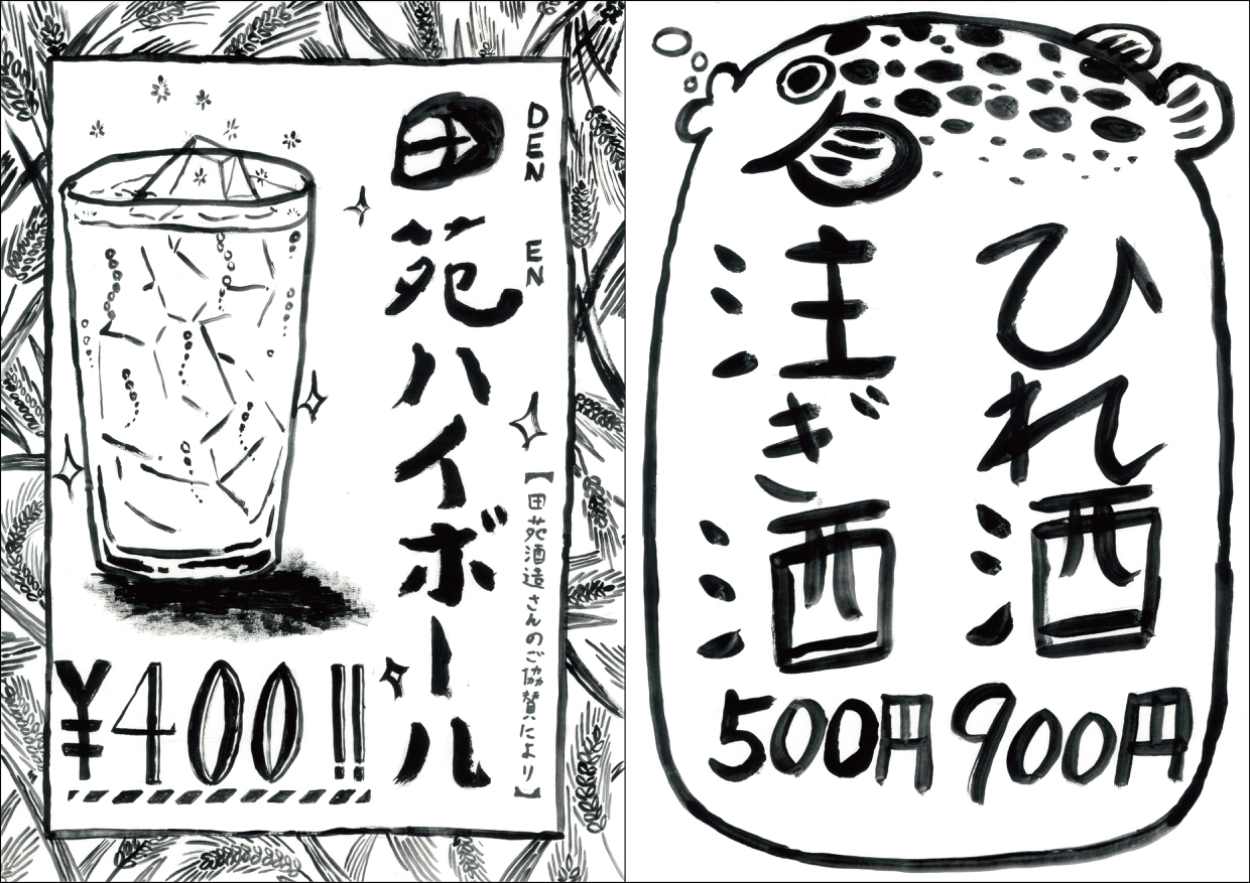 田苑ハイボール
DEN EN
【田苑酒造さんのご協賛により】
¥400!!
ひれ酒
900円
注ぎ酒
500円